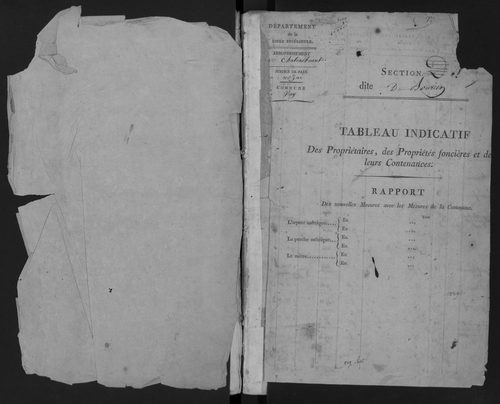 DÉPARTEMENT
de la
LOIRE INFÉRIEURE.
ARRONDISSEMENT
Chateaubriant
JUSTICE DE PAIX
Nozay
COMMUNE
SECTION
dite
TABLEAU INDICATIF
Des Propriétaires, des Propriétés foncières et de
leurs Contenances.
RAPPORT
Des nouvelles Mesures avec les Mesures de la Commune.
L'arpent métrique.... { En
{ En
La perche métrique.. { En
{ En
Le mètre........... { En
{ En